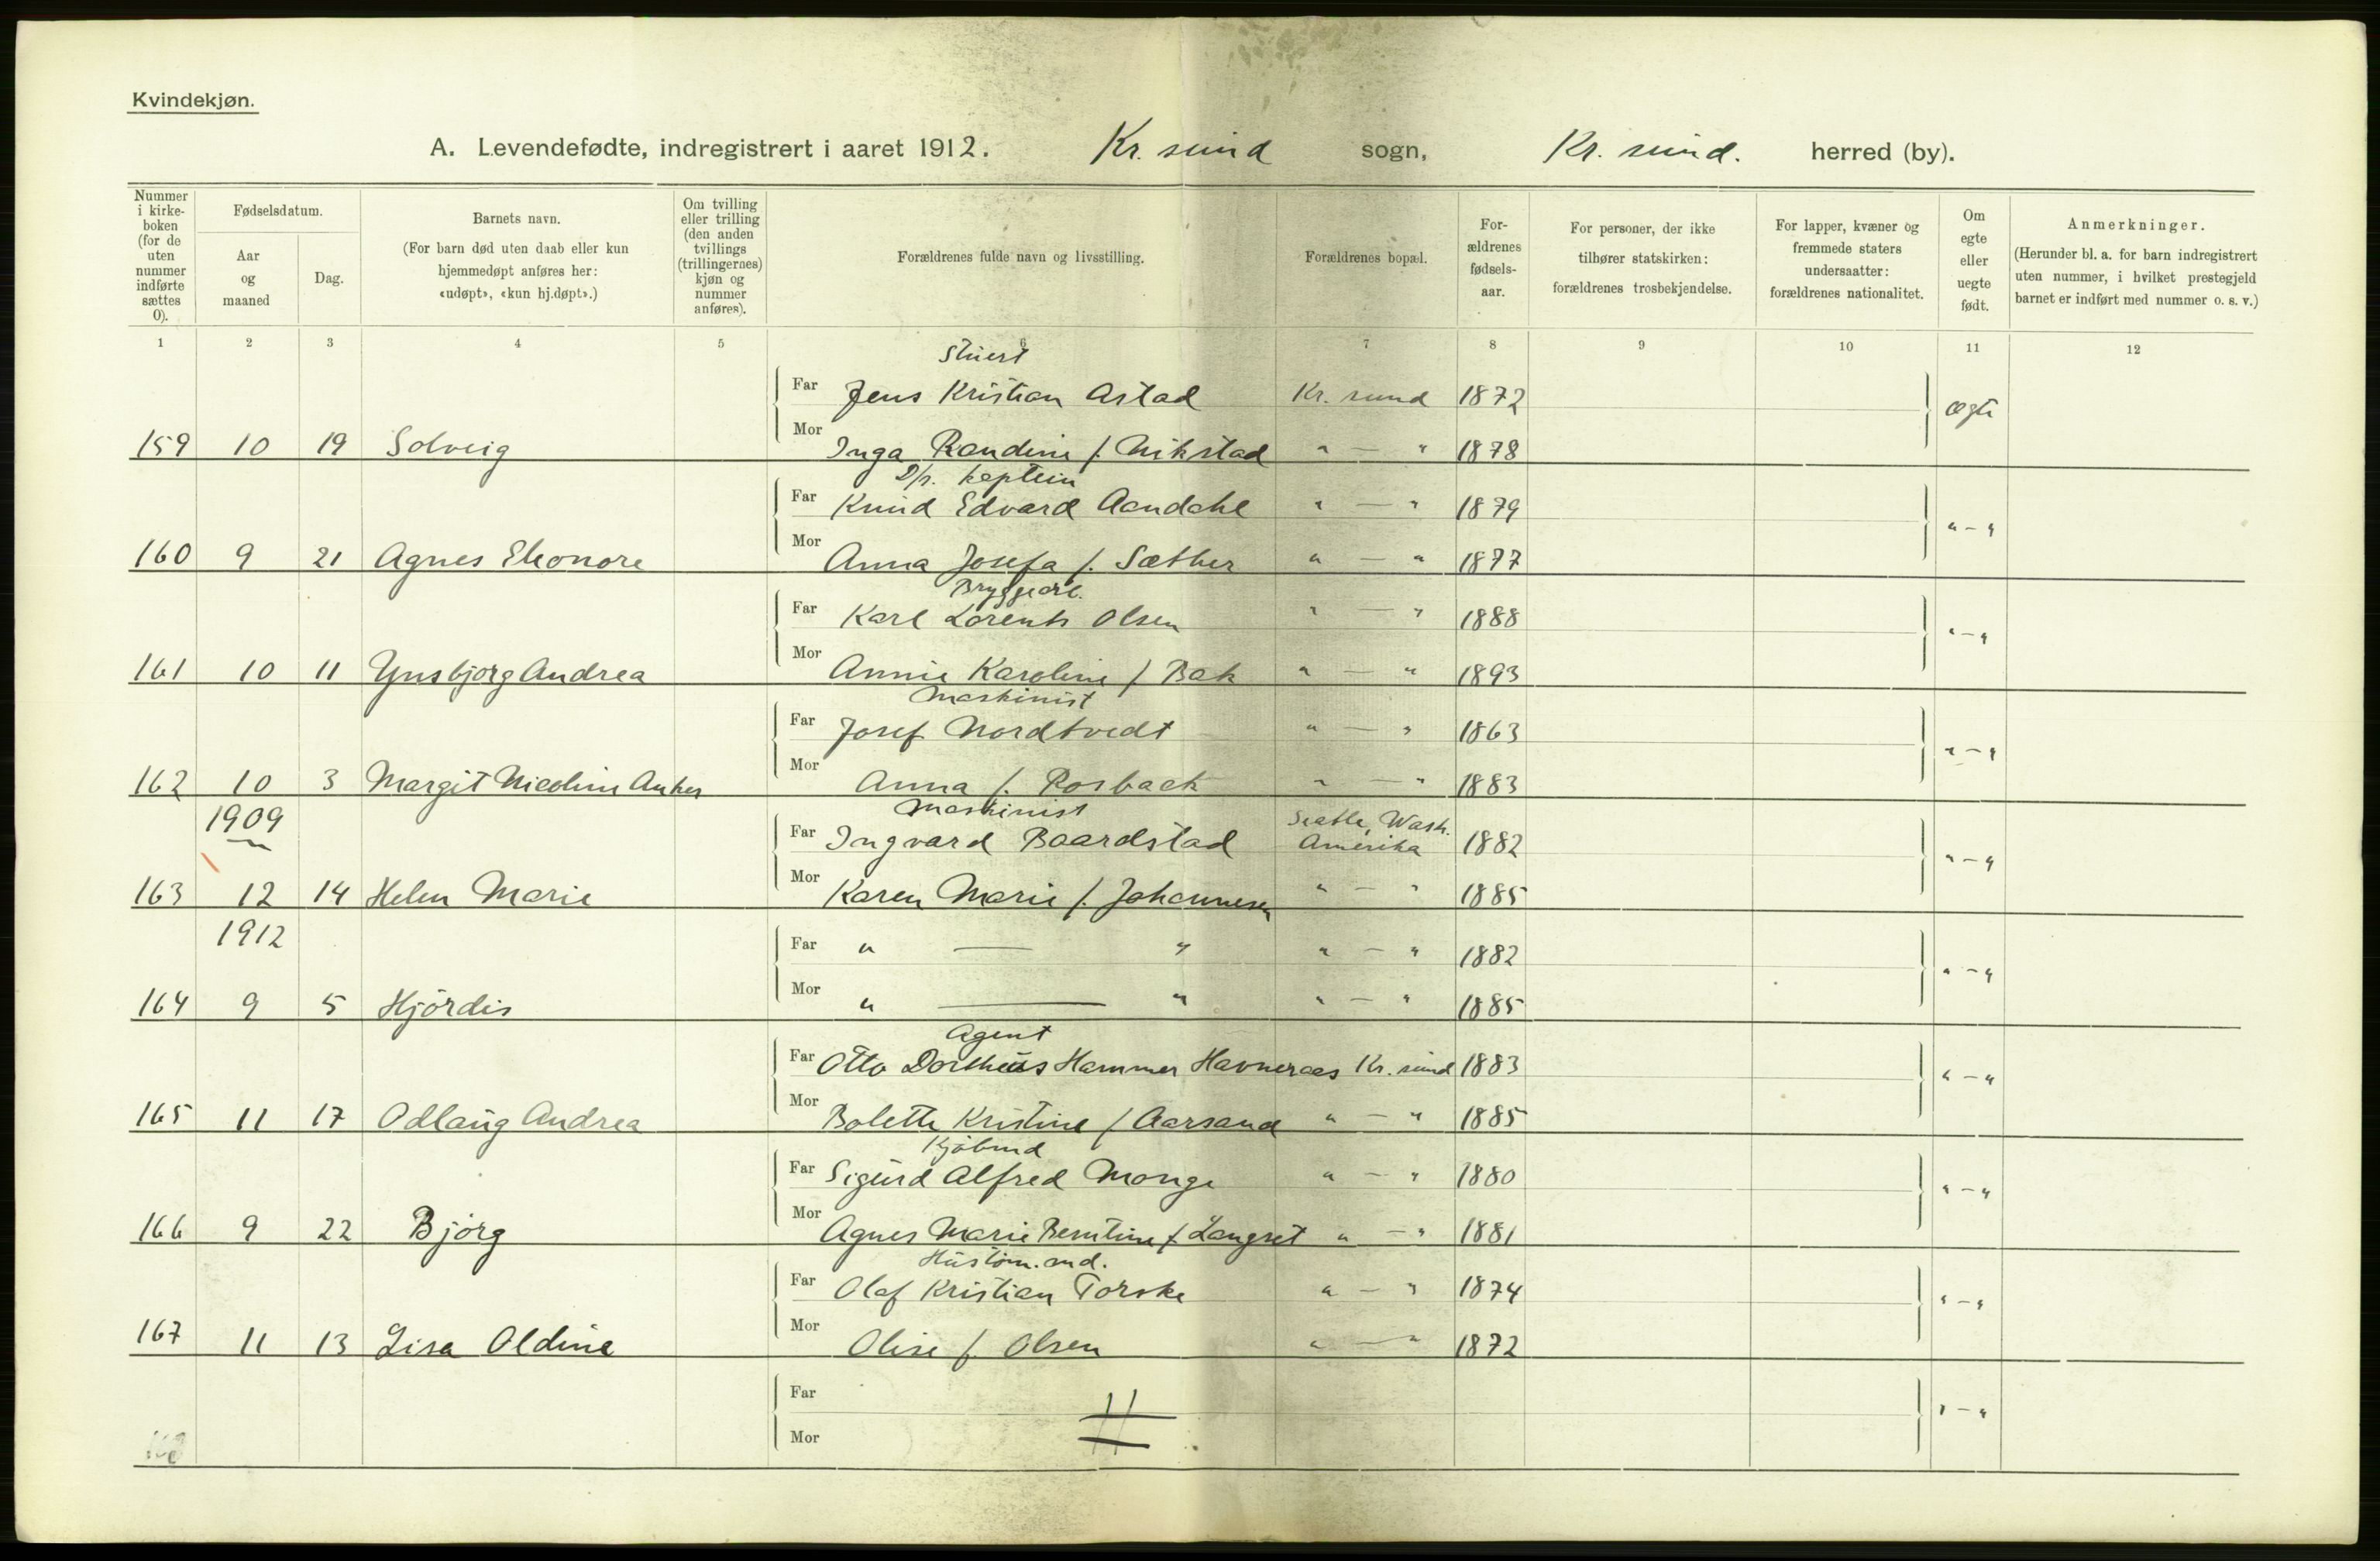 Kvindekjøn.
A. Levendefødte, indregistrert i aaret 1912. Kr. sund sogn, Kr. sund. herred (by).
Nummer i kirke- boken (for de uten nummer indførte sættes 0).
Fødselsdatum.
Aar og maaned
Dag.
Barnets navn.
(For barn død uten daab eller kun hjemmedøpt anføres her: «udøpt», «kun hj.døpt».)
Om tvilling eller trilling (den anden tvillings (trillingernes) kjøn og nummer anføres).
Forældrenes fulde navn og livsstilling.
Forældrenes bopæl.
For- ældrenes fødsels- aar.
For personer, der ikke tilhører statskirken: forældrenes trosbekjendelse.
For lapper, kvæner og fremmede staters undersaatter: forældrenes nationalitet.
Om egte eller uegte født.
Anmerkninger.
(Herunder bl. a. for barn indregistrert uten nummer, i hvilket prestegjeld barnet er indført med nummer o. s. v.)
1 2 3 4 5 6 7 8 9 10 11 12
Stuert
Far Jens Kristian Astad Kr. sund 1872 ægte
159 10 19 Solveig Mor Inga Randine f. Nikstad " — " 1878
D/s. kaptein
Far Knud Edvard Aandahl " — " 1879 " — "
160 9 21 Agnes Eleonore Mor Anna Josefa f. Sæther " — " 1877
Bryggearb.
Far Karl Lorents Olsen " — " 1888 " — "
161 10 11 Ynsbjørg Andrea Mor Annie Karoline f Bak " — " 1893
Maskinist
Far Josef Nordtvedt " — " 1863 " — "
162 10 3 Margit Nicoline Anker Mor Anna f. Rosbach " — " 1883
1909 Maskinist Seatle, Wash.
Far Ingvard Baardstad Amerika 1882 " — "
163 12 14 Helen Marie Mor Karen Marie f. Johannesen " — " 1885
1912 Far " — " " — " 1882 " — "
164 9 5 Hjördis Mor " — " " — " 1885
Agent
Far Otto Dortheus Hammer Havneraas Kr. sund 1883 " — "
165 11 17 Odlaug Andrea Mor Bolette Kristine f Aarsand " — " 1885
Kjöbmd
Far Sigurd Alfred Monge " — " 1880 " — "
166 9 22 Bjørg Mor Agnes Marie Berntine f. Langset " — " 1881
Hustöm. and.
Far Olaf Kristian Torske " — " 1874 " — "
167 11 13 Lisa Oldine Mor Olise f. Olsen " — " 1872
Far " — "
168 Mor